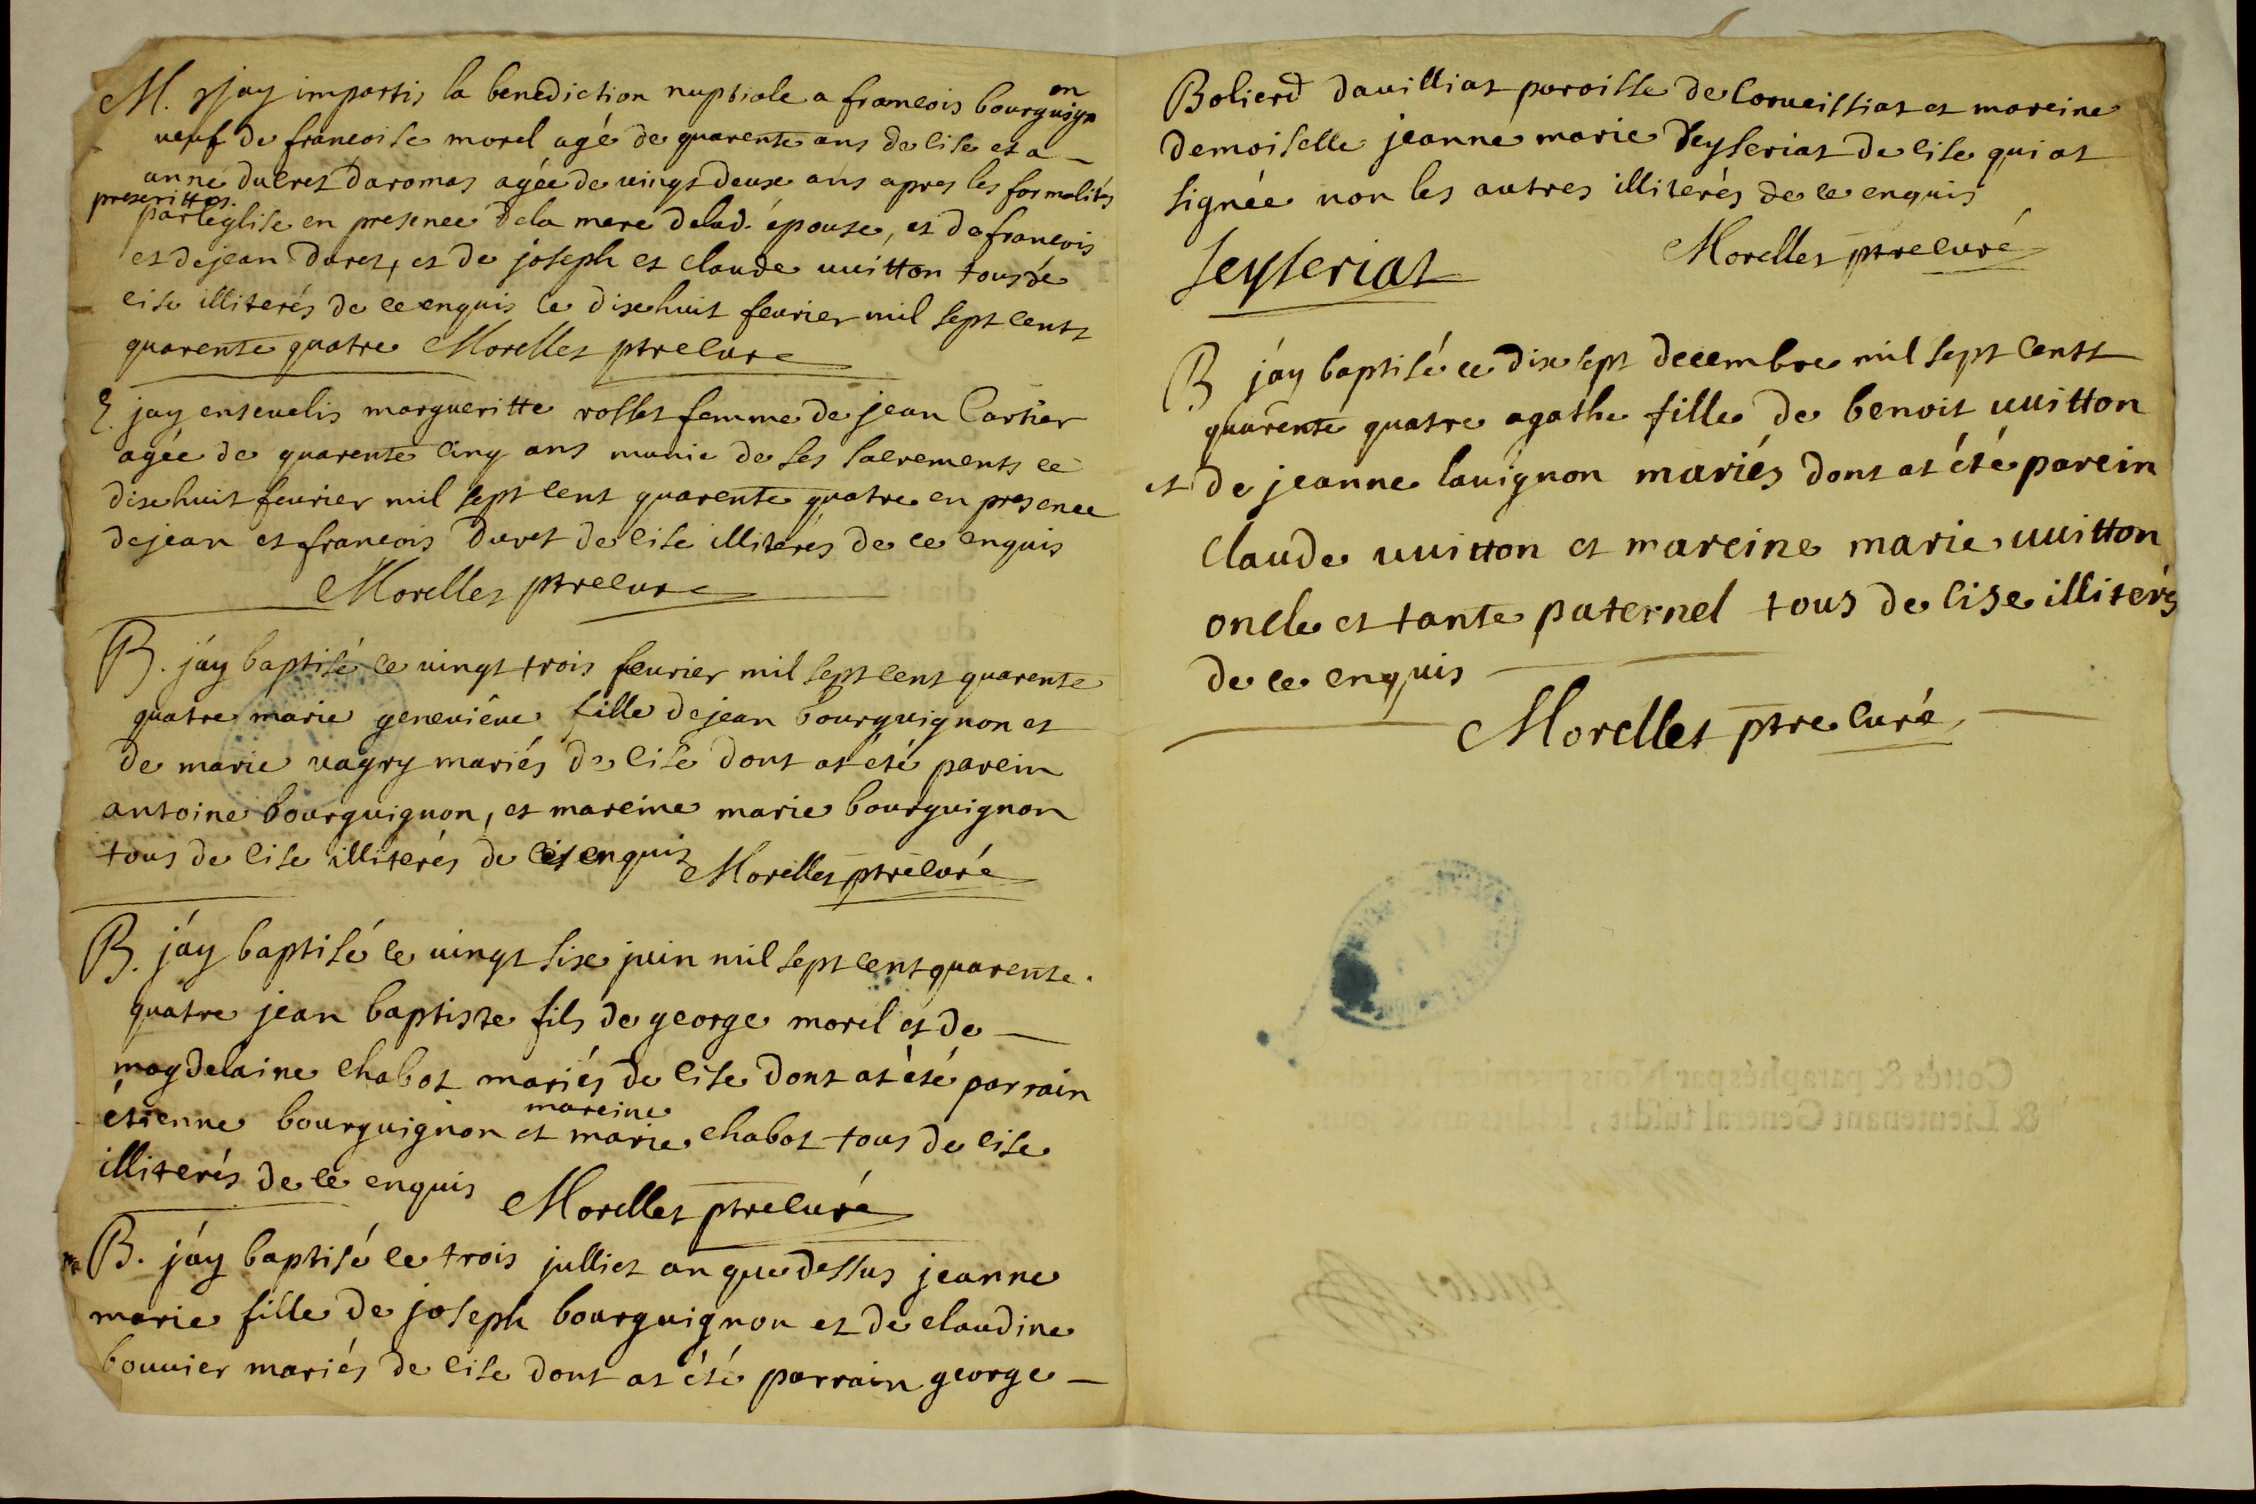 M. jay impartis la benediction nuptiale a francois bourguignon
veuf de francoise morel agé de quarente ans de cise et a
anne ducret daromas agée de vingt deux ans apres les formalités
prescrittes
par leglise en presence dela mere delad. épouse, et de francois
et dejean duret, et de joseph et claude vuitton tous de
cise illiterés de ce enquis le dixhuit fevrier mil sept cents
quarente quatre Morellet ptre curé
E. jay ensevelis margueritte rosset femme de jean Cartier
agée de quarente cinq ans munie de ses sacrements le
dixhuit fevrier mil sept cent quarente quatre en presence
dejean et francois duret de cise illiterés de ce enquis
Morellet ptre curé
B. jáy baptisé le vingt trois fevrier mil sept cent quarente
quatre marie genevieve fille dejean bourguignon et
de marie vagry mariés de cise dont at été parein
antoine bourguignon, et mareine marie bourguignon
tous de cise illiterés de ce enquis Morellet ptre curé
B. jáy baptisé le vingt six juin mil sept cent quarente
quatre jean baptiste fils de george morel et de
magdelaine chabot mariés de cise dont at été parrain
étienne bourguignon et mareine marie chabot tous de cise
illiterés de ce enquis Morellet ptre curé
B. jáy baptisé le trois julliet an que dessus jeanne
marie fille de joseph bourguignon et de claudine
bouvier mariés de cise dont at été parrain george
Bolierd davilliat paroisse de Corveissiat et mareine
demoiselle jeanne marie deyseriat de cise qui at
signée non les autres illiterés de ce enquis
Seyseriat Morellet ptre curé
B jáy baptisé le dix sept decembre mil sept cents
quarente quatre agathe fille de benoit vuitton
et de jeanne lavignon mariés dont at été parein
claude vuitton et mareine marie vuitton
oncle et tante paternel tous de cise illiterés
de ce enquis
Morellet ptre curé
Cottés & paraphés par
& Lieutenant General susdit,